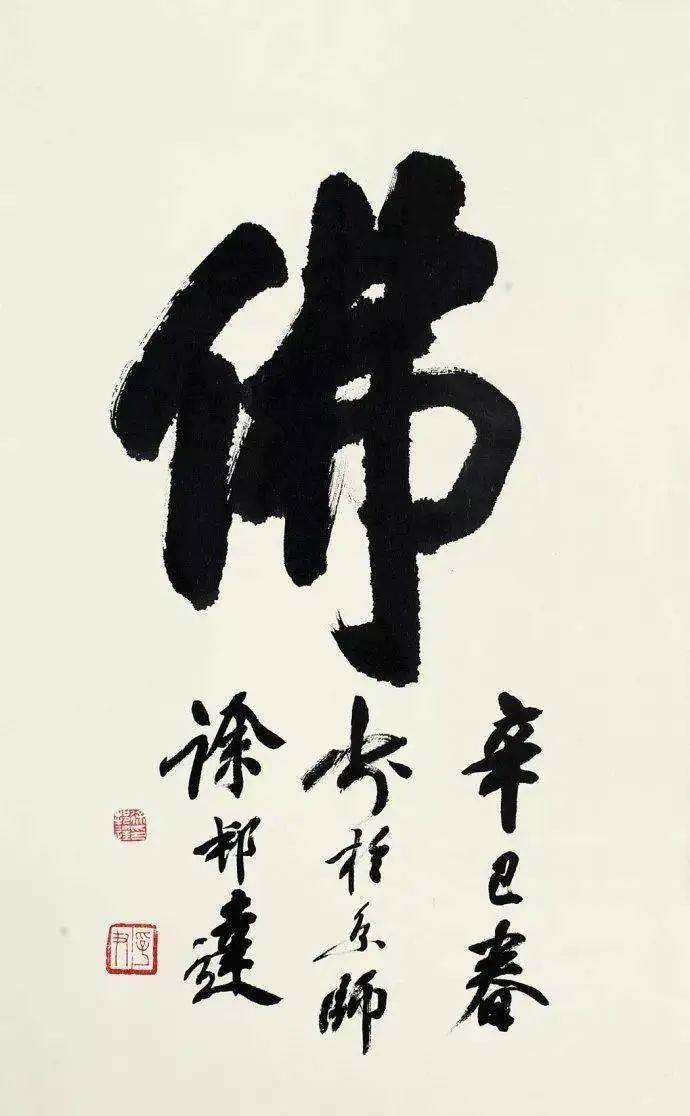 佛
辛巳春
书於京師
徐邦達